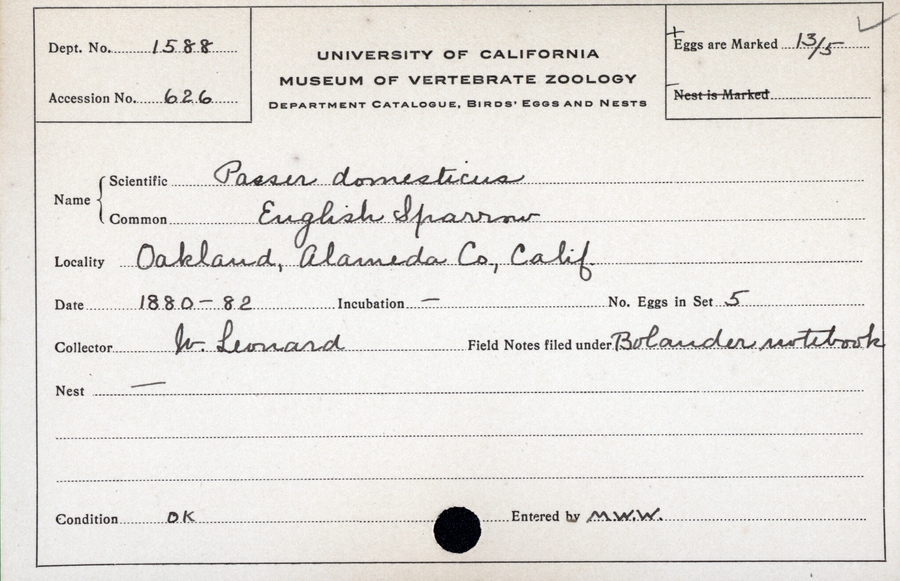 Dept. No. 1588
Accession No. 626
UNIVERSITY OF CALIFORNIA
MUSEUM OF VERTEBRATE ZOOLOGY
DEPARTMENT CATALOGUE, BIRDS' EGGS AND NESTS
Eggs are Marked 13/5
Nest is Marked
Name
Scientific Passer domesticus
Common English Sparrow
Locality Oakland, Alameda Co, Calif.
Date 1880-82 Incubation — No. Eggs in Set 5
Collector W. Leonard Field Notes filed under Bolander notebook
Nest —
Condition OK Entered by M.W.W.